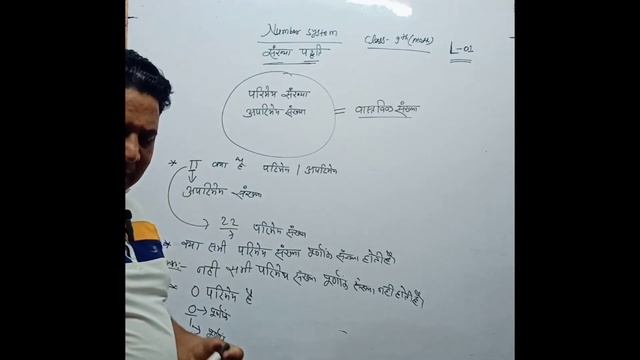 Number system
संख्या पद्धति
Class- 9th (math)
L-01
परिमेय संख्या
अपरिमेय संख्या
= वास्तविक संख्या
* π क्या है परिमेय / अपरिमेय
अपरिमेय संख्या
22/7 परिमेय संख्या
* क्या सभी परिमेय संख्या पूर्णांक संख्या होती है।
:- नही सभी परिमेय संख्या पूर्णांक संख्या नही होती है।
* 0 परिमेय है
0 → पूर्णांक
1 → पूर्णांक